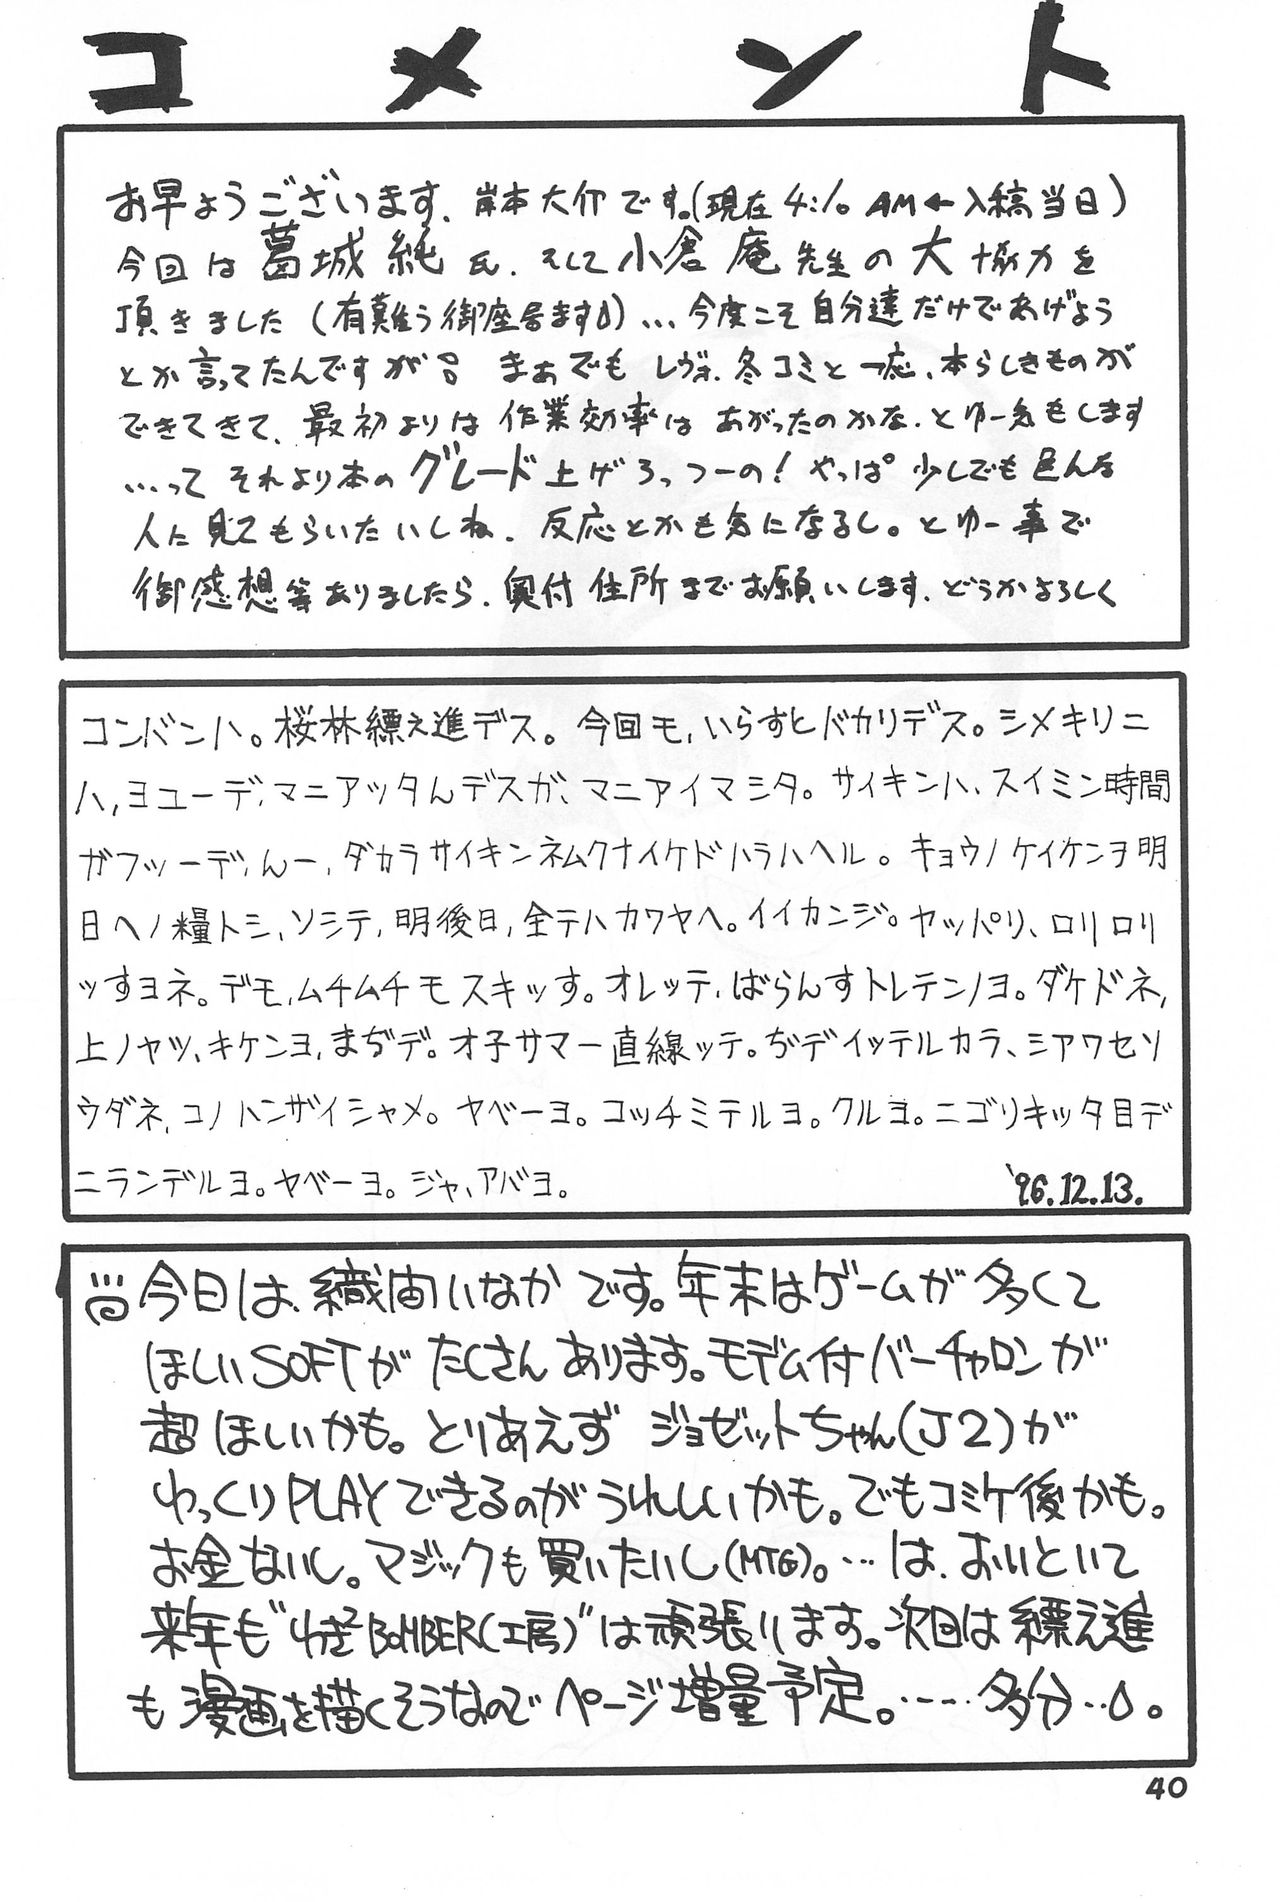 コメント
お早ようございます、岸本大介です。(現在4:10 AM←入稿当日)
今回は葛城純氏、そして小倉庵先生の大協力を
頂きました(有難う御座居ます)…今度こそ自分達だけであげよう
とか言ってたんですが まぁでもレヴォ、冬コミと一応、本らしきものが
できてきて、最初よりは作業効率はあがったのかな、とゆー気もします
…って それより本のグレード上げろっつーの!やっぱ少しでも色んな
人に見てもらいたいしね、反応とかも気になるし。とゆー事で
御感想等ありましたら、奥付住所までお願いします、どうかよろしく
コンバンハ。桜林縹え進デス。今回モ、いらすとバカリデス。シメキリニ
ハ,ヨユーデ,マニアッタんデスガ、マニアイマシタ。サイキンハ、スイミン時間
ガフツーデ,んー,ダカラサイキンネムクナイケドハラハヘル。キョウノケイケンヲ明
日ヘノ糧トシ,ソシテ,明後日,全テハカワヤヘ。イイカンジ。ヤッパリ、ロリロリ
ッすヨネ。デモ,ムチムチモスキッす。オレッテ,ばらんすトレテンノヨ。ダケドネ,
上ノヤツ、キケンヨ,まぢデ。オ子サマ一直線ッテ。ぢデイッテルカラ、シアワセソ
ウダネ,コノハンザイシャメ。ヤベーヨ。コッチミテルヨ。クルヨ。ニゴリキッタ目デ
ニランデルヨ。ヤベーヨ。ジャ,アバヨ。 '96.12.13.
今日は、織宙いなかです。年末はゲームが多くて
ほしいSOFTがたくさんあります。モデム付バーチャロンが
超ほしいかも。とりあえずジョゼットちゃん(J2)が
ゆっくりPLAYできるのがうれしいかも。でもコミケ後かも。
お金ないし。マジックも買いたいし(MTG)。…は、おいといて
来年も"わぎそBOMBER(工房)"は頑張ります。次回は縹え進
も漫画を描くそうなのでページ増量予定。……多分…。
40